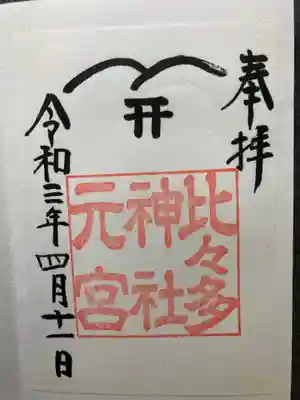 奉拝
比々多
神社
元宮
令和三年四月十一日